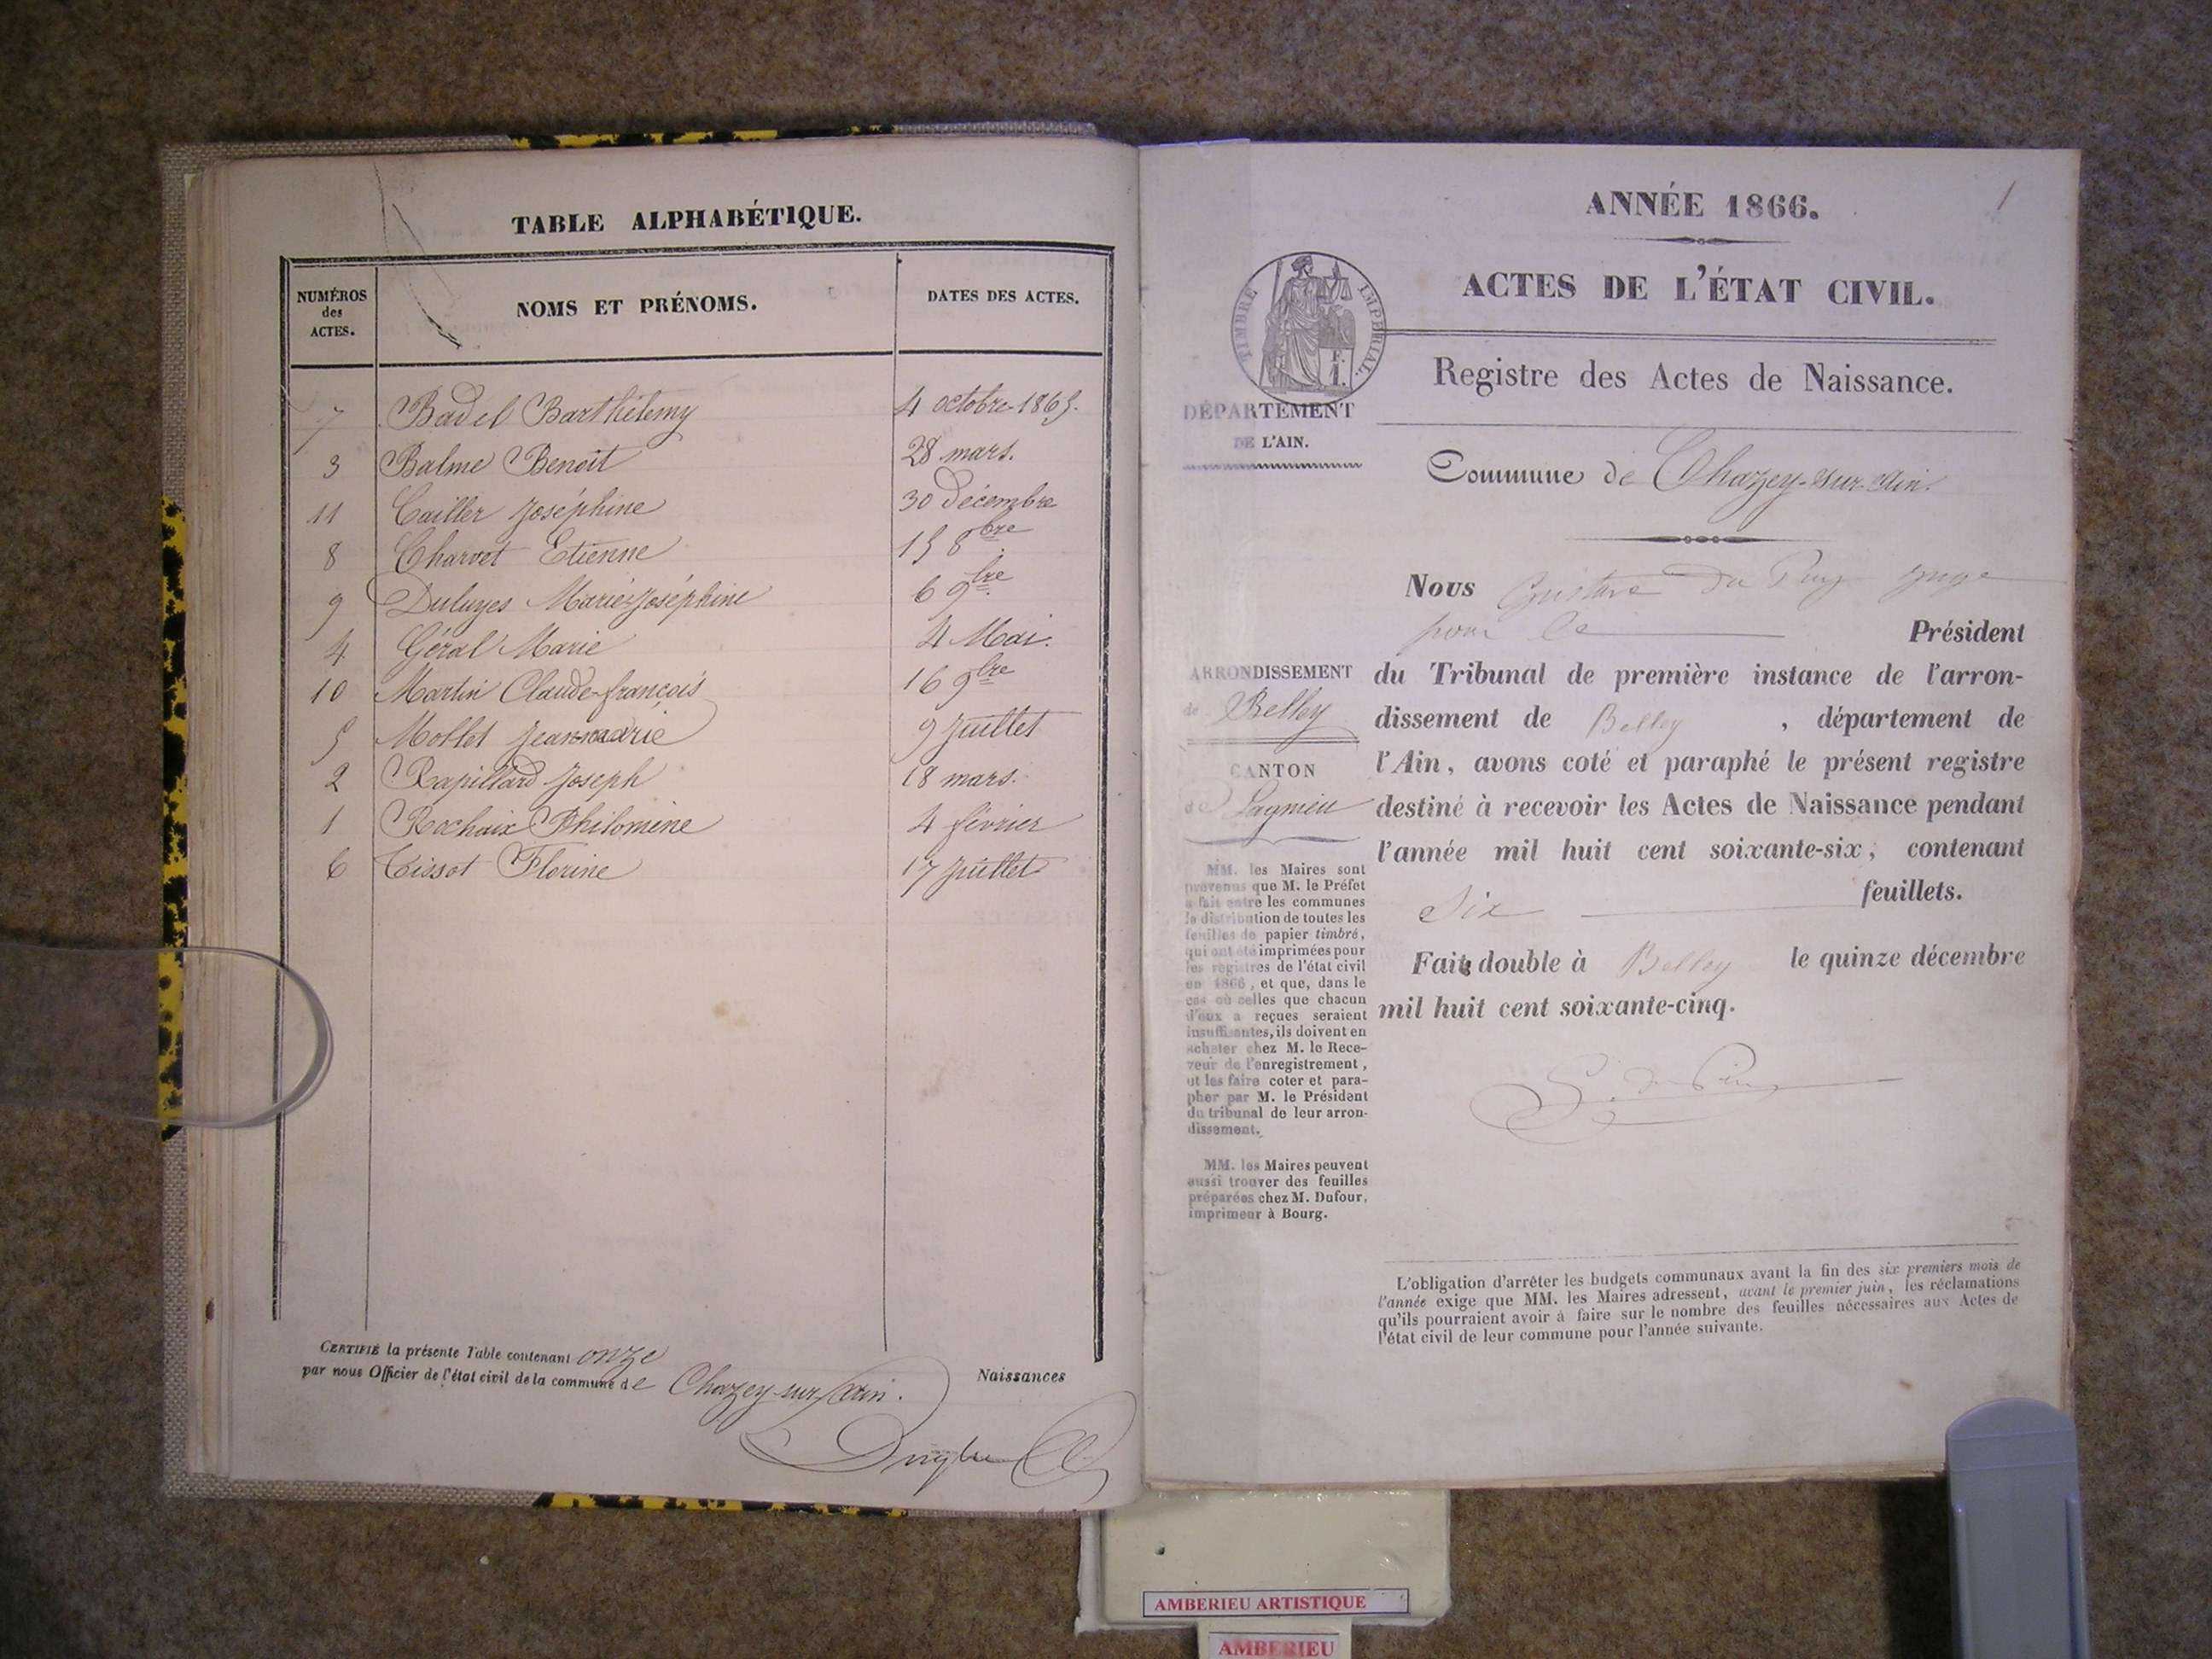 TABLE ALPHABÉTIQUE.
NUMÉROS des ACTES. NOMS ET PRÉNOMS. DATES DES ACTES.
7 Badel Barthélemy 4 octobre 1865.
3 Balme Benoit 28 mars.
11 Cailler Joséphine 30 décembre
8 Charvet Etienne 15 8bre
9 Duluyes Marie-Joséphine 6 9bre
4 Géral Marie 4 Mai.
10 Martin Claude-françois 16 9bre
5 Mollet Jeanmarie 9 Juillet
2 Rapillard Joseph 18 mars.
1 Rochaix Philomène 4 février
6 Tissot Florine 17 Juillet
CERTIFIÉ la présente Table contenant onze Naissances
par nous Officier de l'état civil de la commune de Chazey-sur-Ain.
1
ANNÉE 1866.
ACTES DE L'ÉTAT CIVIL.
TIMBRE IMPÉRIAL.
Registre des Actes de Naissance.
DÉPARTEMENT
DE L'AIN.
Commune de Chazey-sur-Ain.
Nous Gustave Du Puy juge
pour le Président
du Tribunal de première instance de l'arron-
dissement de Belley, département de
l'Ain, avons coté et paraphé le présent registre
destiné à recevoir les Actes de Naissance pendant
l'année mil huit cent soixante-six, contenant
Six feuillets.
Faits double à Belley le quinze décembre
mil huit cent soixante-cinq.
ARRONDISSEMENT
de Belley
CANTON
de Lagnieu
MM. les Maires sont
prévenus que M. le Préfet
a fait entre les communes
la distribution de toutes les
feuilles de papier timbré,
qui ont été imprimées pour
les registres de l'état civil
en 1866, et que, dans le
cas où celles que chacun
d'eux a reçues seraient
insuffisantes, ils doivent en
acheter chez M. le Rece-
veur de l'enregistrement,
et les faire coter et para-
pher par M. le Président
du tribunal de leur arron-
dissement.
MM. les Maires peuvent
aussi trouver des feuilles
préparées chez M. Dufour,
imprimeur à Bourg.
L'obligation d'arrêter les budgets communaux avant la fin des six premiers mois de
l'année exige que MM. les Maires adressent, avant le premier juin, les réclamations
qu'ils pourraient avoir à faire sur le nombre des feuilles nécessaires aux Actes de
l'état civil de leur commune pour l'année suivante.
AMBERIEU ARTISTIQUE
AMBERIEU